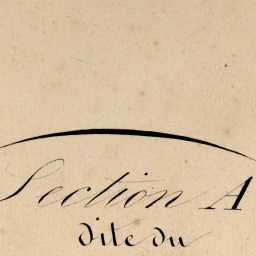 Section A
dite du